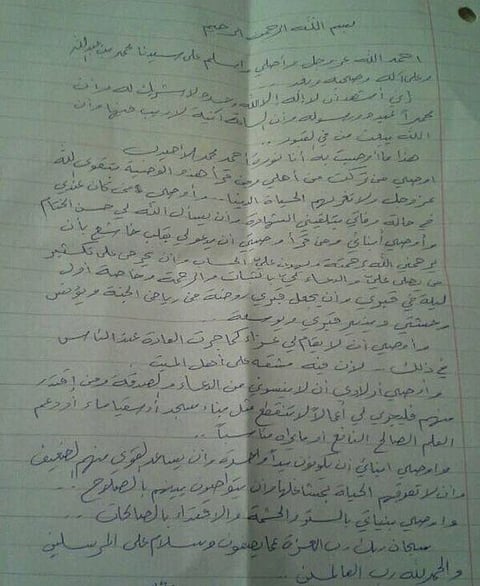 بسم الله الرحمن الرحيم
احمد الله عز وجل وأصلي وأسلم على سيدنا محمد بن عبدالله
وعلى آله وصحبه وبعد
إني أشهد أن لا إله إلا الله وحده لا شريك له وأن
محمداً عبده ورسوله وأن الساعة آتية لا ريب فيها وأن
الله يبعث من في القبور ..
هذا ما أوصيت به أنا نورة أحمد محمد
أوصي من تركت من أهلي ومن قرأ هذه الوصية بتقوى الله
عز وجل ولا تغرهم الحياة الدنيا .. وأوصي من كان عندي
في حالة وفاتي بتلقيني الشهادة وأن يسأل الله لي حسن الختام
وأوصي أبنائي ومن قرأ وصيتي أن يدعو لي بقلب خاشع بأن
يرحمني الله برحمته ويهون علي الحساب وأن يحرص على تكثير
من يصلي علي والدعاء لي بالثبات والرحمة وخاصة أول
ليلة في قبري وأن يجعل قبري روضة من رياض الجنة ويؤنس
وحشتي وينير قبري ويوسعه
وأوصي أن لا يقام لي عزاء كما جرت العادة عند الناس
في ذلك .. لأن فيه مشقة على أهل الميت
وأوصي أولادي أن لا ينسوني من الدعاء والصدقة ومن اقتدر
منهم فليجري لي أعمالاً لا تنقطع مثل بناء مسجد أو سقيا ماء أو دعم
العلم الصالح النافع أو ما يراه مناسباً ..
وأوصي أبنائي أن يكونوا يداً واحدة وأن يساعد القوي منهم الضعيف
وأن لا تفرقهم الحياة بمشاغلها وأن يتواصون بينهم بالصلاح ..
وأوصي بناتي بالستر والحشمة والاقتداء بالصالحات ..
سبحان ربك رب العزة عما يصفون وسلام على المرسلين
والحمد لله رب العالمين ..